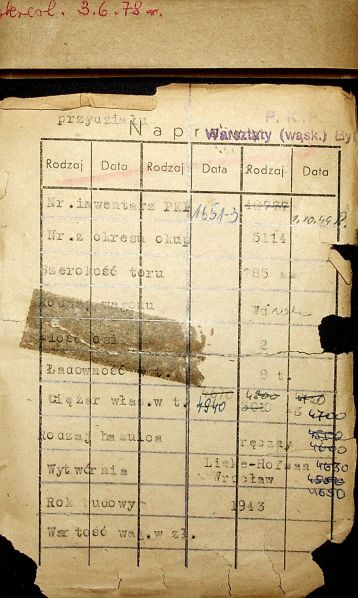 skreśl. 3.6.78 r.
przydziału
P.K.P.
Napraw
Warsztaty (wąsk.) By
Rodzaj Data Rodzaj Data Rodzaj Data
Nr.inwentarz PKP 1651-3 1.10.49 R.
Nr.z okresu okup 5114
Szerokość toru 785 mm
Rodzaj wagonu
Ilość osi 2
Ładowność w t. 8 t.
Ciężar włas.w t. 4940 4800 4700
4700
Rodzaj hamulca ręczny
4600
Wytwórnia Linke-Hofman 4630
Wrocław
4650
Rok budowy 1943
Wartość wag.w zł.